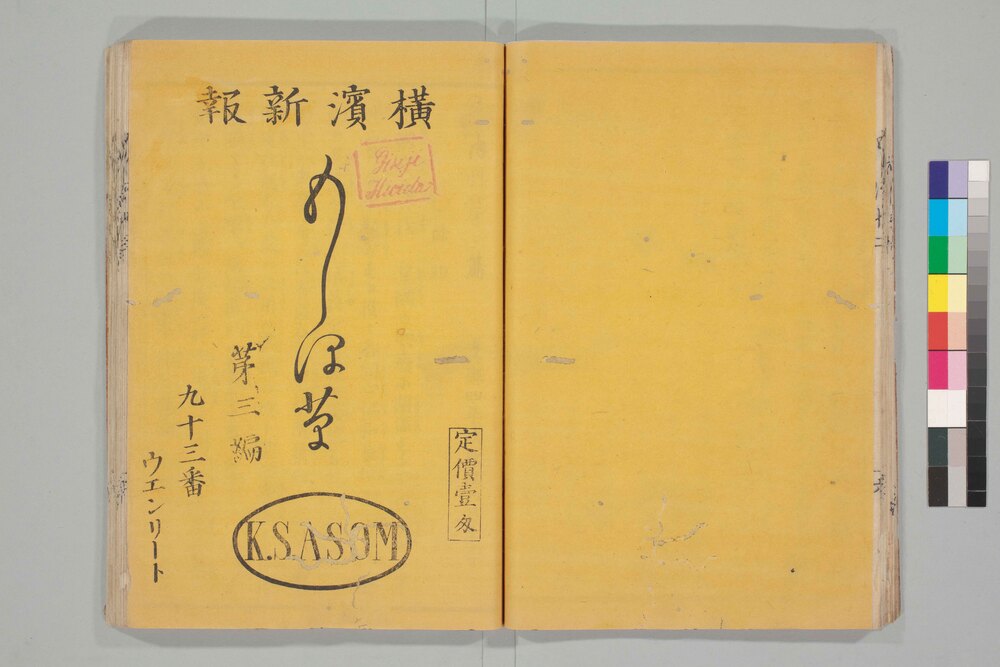 横濱新報
もしほ草
第三編
九十三番
ウエンリート
定價壹匁
K.S.ASOM